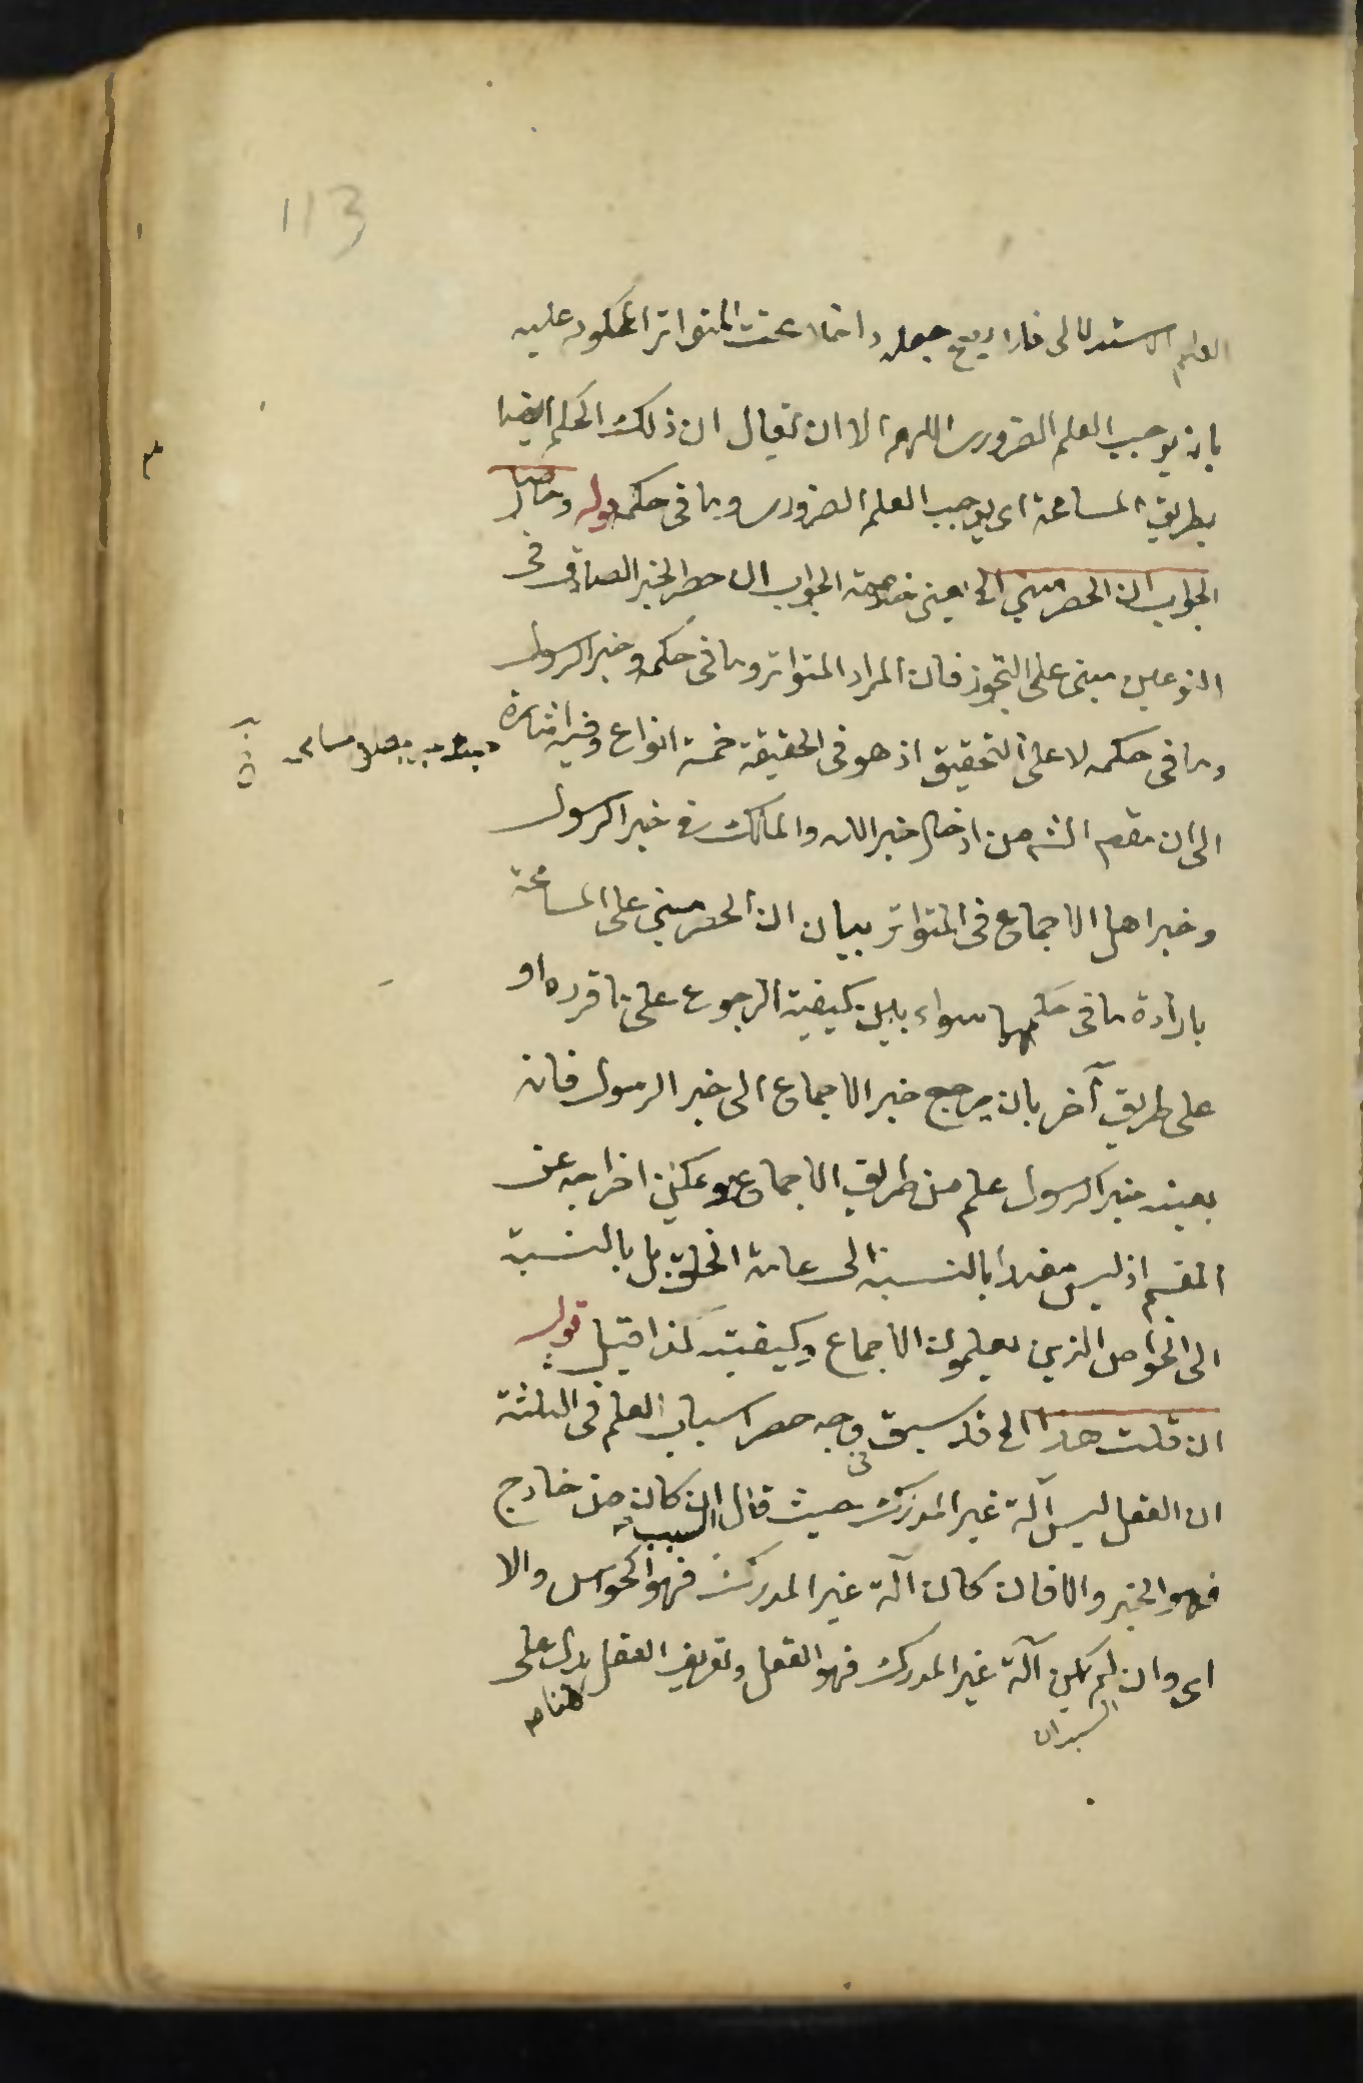 113
العلم الاستدلالى فلا يصح جعله داخلا تحت المتواتر المحكوم عليه
بان يوجب العلم الضرورى اللهم الا ان يقال ان ذلك الحكم ايضا
بطريق المسامحة اى يوجب العلم الضرورى وما فى حكمه قوله وحاصل
الجواب ان الحصر مبنى الخ يعنى خلاصة الجواب ان حصر الخبر الصادق فى
النوعين مبنى على التجوز فان المراد المتواتر وما فى حكمه وخبر الرسول
وما فى حكمه لا على التحقيق اذ هو فى الحقيقة خمسة انواع وفيه اشارة
الى ان مقصد الشم من ادخال خبر الله والملك فى خبر الرسول
وخبر اهل الاجماع فى المتواتر بيان ان الحصر مبنى على المسامحة
بارادة ما فى حكمهما سواء بين كيفية الرجوع على ما قرره او
على طريق آخر بان يرجع خبر الاجماع الى خبر الرسول فانه
بعينه خبر الرسول علم من طريق الاجماع ويمكن اخراجه عن
المقسم اذ ليس مفيدا بالنسبة الى عامة الخلق بل بالنسبة
الى الخواص الذين يعلمون الاجماع وكيفيته كذا قيل قوله
ان قلت هذا الخ قد سبق فى وجه حصر اسباب العلم فى الثلثة
ان العقل ليس آلة غير المدرك حيث قال ان السبب ان كان من خارج
فهو الخبر والا فان كان آلة غير المدرك فهو الحواس والا
اى وان لم يكن آلة غير المدرك فهو العقل وتعريف العقل يدل على
هنا